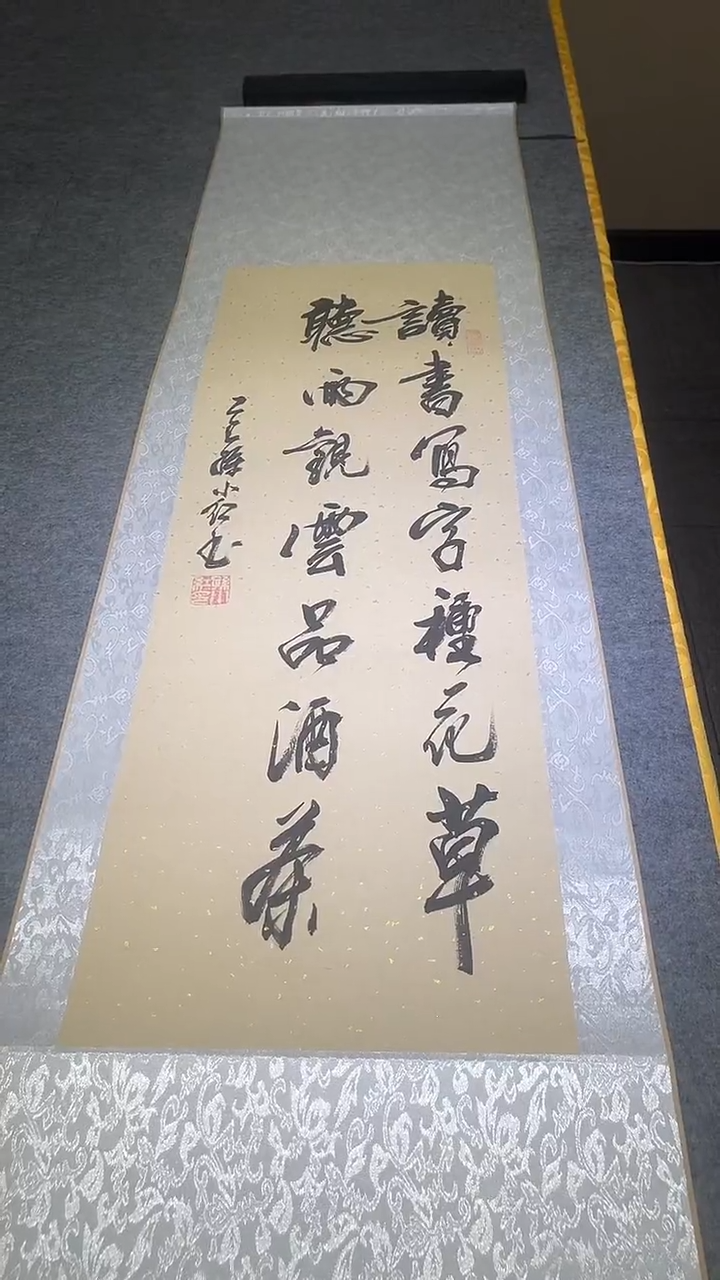 讀書寫字種花草
聽雨觀雲品酒茶
小石書